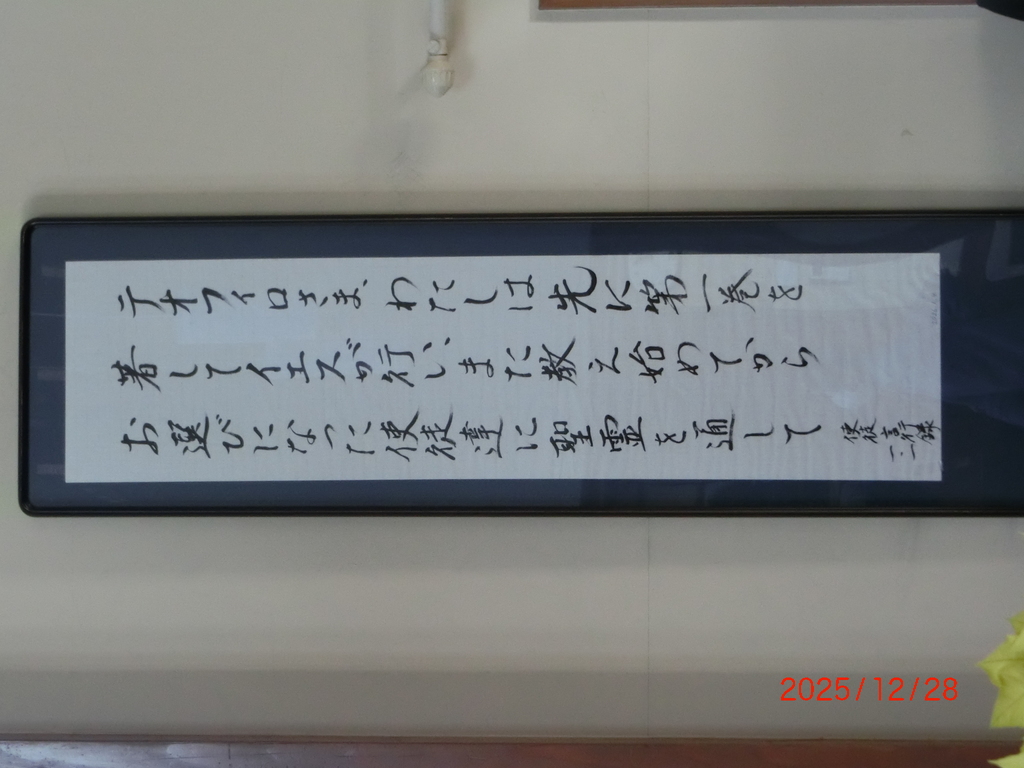 テオフィロさま、わたしは先に第一巻を
著してイエズが行い、また教え始めてから
お選びになった使徒達に聖霊を通して
使徒言行録
一・一
2025/12/28